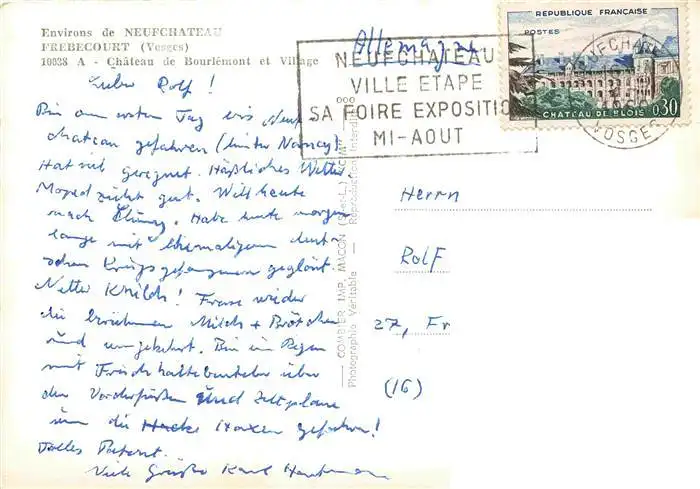 Environs de NEUFCHATEAU
FREBECOURT (Vosges)
10038 A - Château de Bourlémont et Village
Lieber Rolf!
Bin am ersten Tag bis Neuf-
chateau gefahren (hinter Nancy).
Hat viel geregnet. Häßliches Wetter.
Moped zieht gut. Will heute
nach Cluny. Habe heute morgen
lange mit ehemaligem deut-
schen Kriegsgefangenen geglönt.
Netter Knilch! Fresse wieder
die berühmten Milch + Brötchen
und umgekehrt. Bin im Regen
mit Frischhaltebeuteln über
den Vorderfüßen und Zeltplane
um die Hacke Haxen gefahren!
Tolles Patent.
Viele Grüße Karl
COMBIER IMP. MACON (S.-et-L.)
Photographie Véritable — Reproduction Interdite
Allemagne
NEUFCHATEAU
VILLE ETAPE
SA FOIRE EXPOSITION
MI-AOUT
REPUBLIQUE FRANÇAISE
POSTES
CHATEAU DE BLOIS
0,30
NEUFCHATEAU
VOSGES
Herrn
Rolf
27, Fr
(16)